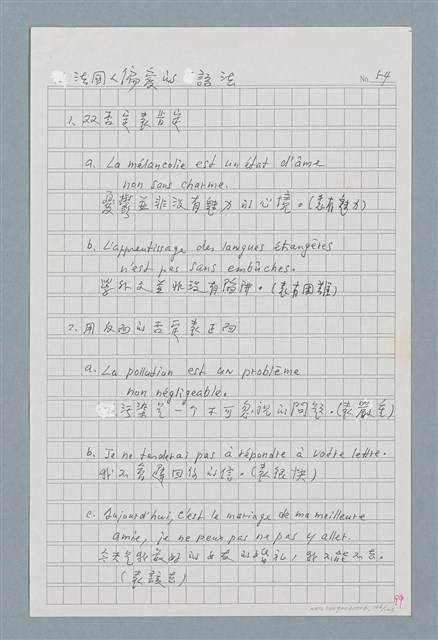 法国人偏愛的語法
No. 54
1. 以否定表肯定
a. La mélancolie est un état d'âme
non sans charme.
憂鬱並非沒有魅力的心境。(表有魅力)
b. L'apprentissage des langues étrangères
n'est pas sans embûches.
學外文並非沒有陷阱。(表有困難)
2. 用反面的否定表正面
a. La pollution est un problème
non négligeable.
污染是一个不可忽視的問題。(表嚴重)
b. Je ne tarderai pas à répondre à votre lettre.
我不會遲回你的信。(表很快)
c. Aujourd'hui, c'est le mariage de ma meilleure
amie, je ne peux pas ne pas y aller.
今天是我最好的女友的婚礼，我不能不去。
(表該去)
99